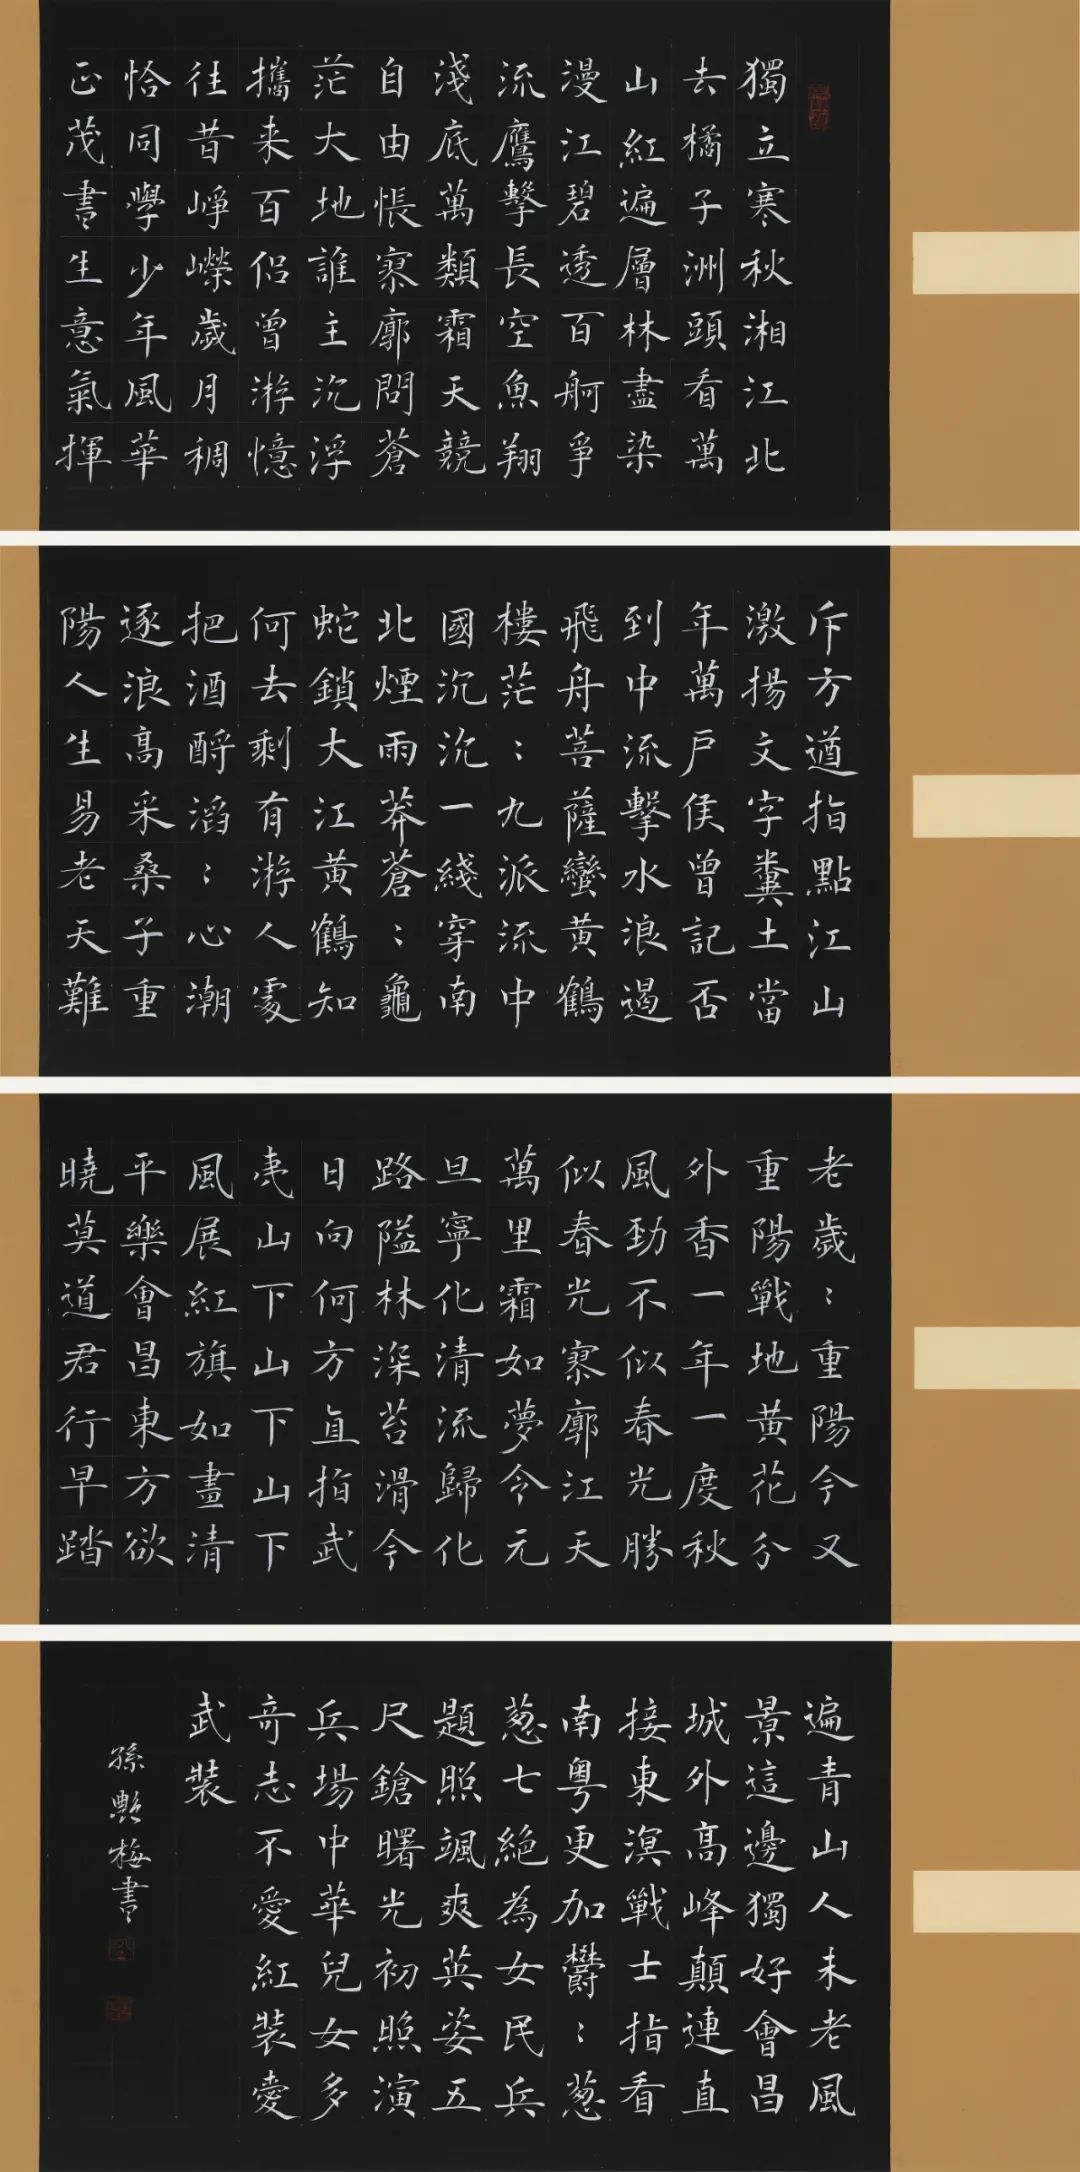 獨立寒秋湘江北
去橘子洲頭看萬
山紅遍層林盡染
漫江碧透百舸爭
流鷹擊長空魚翔
淺底萬類霜天競
自由悵寥廓問蒼
茫大地誰主沉浮
攜来百侶曾游憶
往昔崢嶸歲月稠
恰同學少年風華
正茂書生意氣揮
斥方遒指點江山
激揚文字糞土當
年萬戶侯曾記否
到中流擊水浪遏
飛舟菩薩蠻黃鶴
樓茫：九派流中
國沉沉一綫穿南
北煙雨莽蒼：龜
蛇鎖大江黃鶴知
何去剩有游人處
把酒酹滔：心潮
逐浪高采桑子重
陽人生易老天難
老歲：重陽今又
重陽戰地黃花分
外香一年一度秋
風勁不似春光勝
似春光寥廓江天
萬里霜如夢令元
旦寧化清流歸化
路隘林深苔滑今
日向何方直指武
夷山下山下山下
風展紅旗如畫清
平樂會昌東方欲
曉莫道君行早踏
遍青山人未老風
景這邊獨好會昌
城外高峰顛連直
接東溟戰士指看
南粵更加鬱：葱
葱七絕為女民兵
題照颯爽英姿五
尺鎗曙光初照演
兵場中華兒女多
奇志不愛紅裝愛
武裝
孫艷梅書